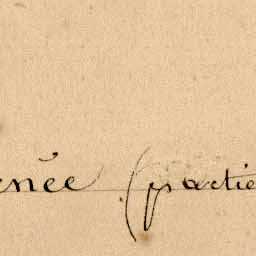 enée (partie